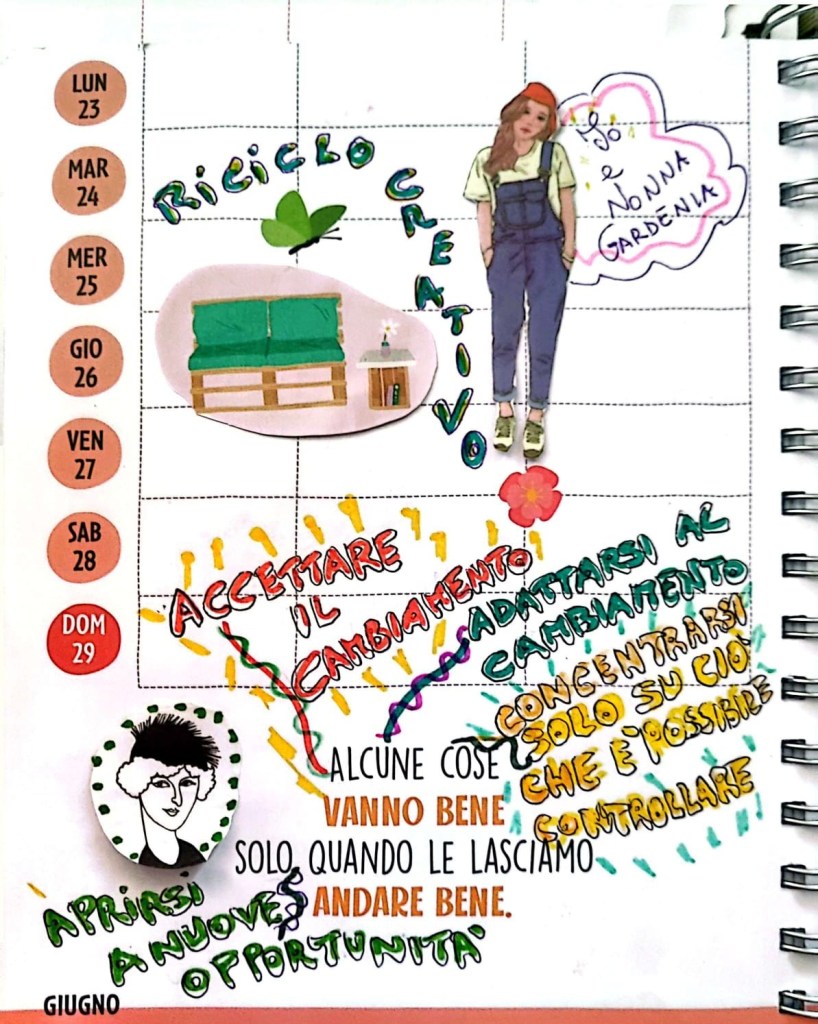 LUN
23
MAR
24
MER
25
GIO
26
VEN
27
SAB
28
DOM
29
RICICLO
CREATIVO
Io
e
NONNA
GARDENIA
ACCETTARE
IL
CAMBIAMENTO
ADATTARSI AL
CAMBIAMENTO
CONCENTRARSI
SOLO SU CIÒ
CHE È POSSIBILE
CONTROLLARE
ALCUNE COSE
VANNO BENE
SOLO QUANDO LE LASCIAMO
ANDARE BENE.
APRIRSI
A NUOVE
OPPORTUNITA'
GIUGNO